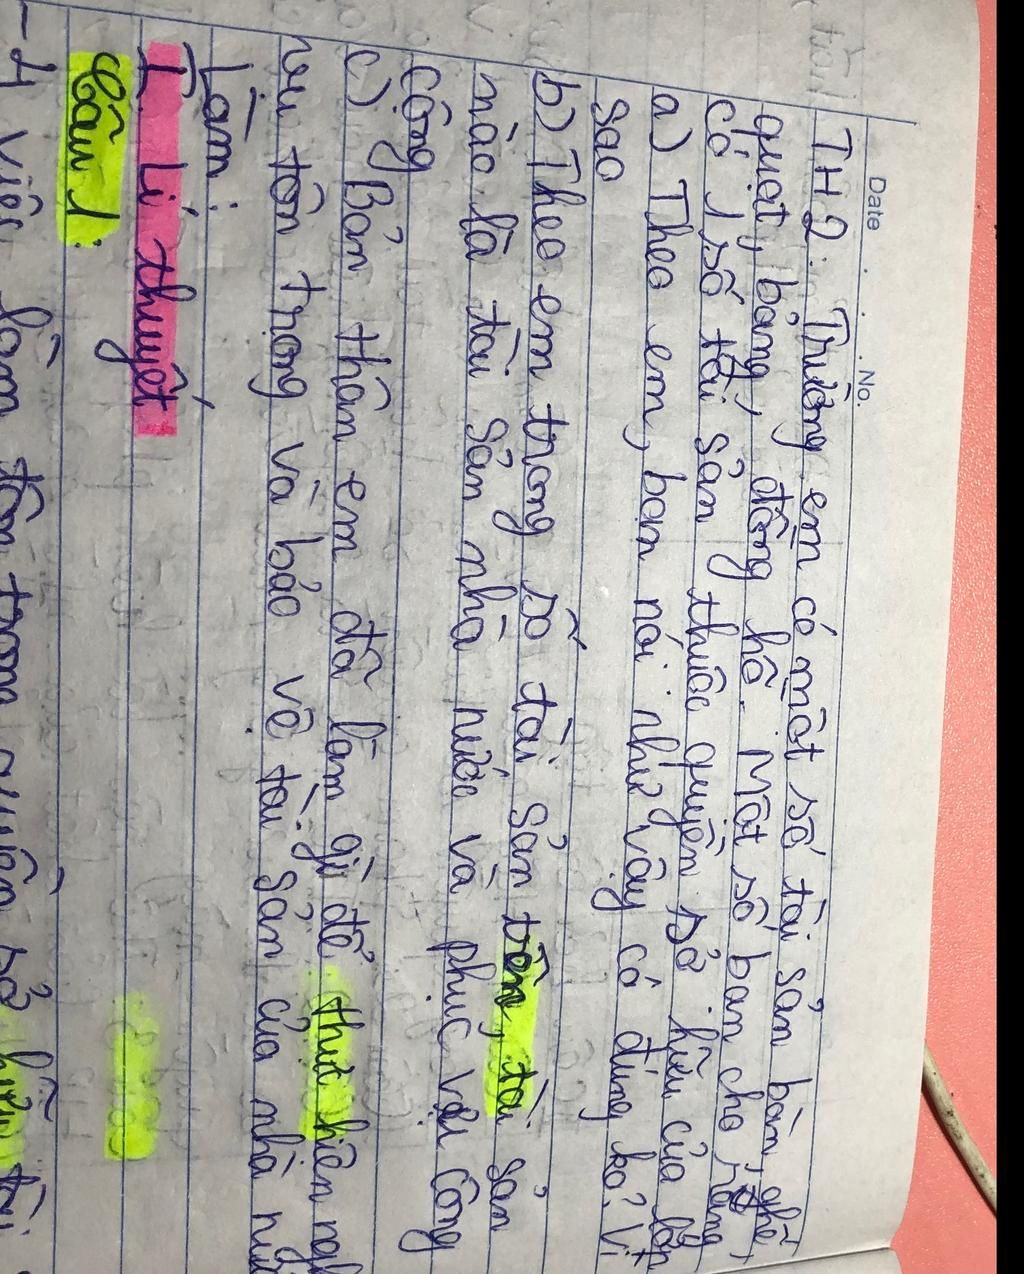 Date
No.
TH2: Trường em có một số tài sản bàn, ghế,
quạt, bảng, đồng hồ. Một số bạn cho rằng
có 1 số tài sản thuộc quyền sở hữu của lớp
a) Theo em, bạn nói như vậy có đúng ko? Vì
sao
b) Theo em trong số tài sản trên, tài sản
nào là tài sản nhà nước và phục vụ công
cộng
c) Bản thân em đã làm gì để thực hiện
tôn trọng và bảo vệ tài sản của nhà
Làm:
I. Lí thuyết
Câu 1:
- Việc làm tôn trọng quyền sở hữu tài